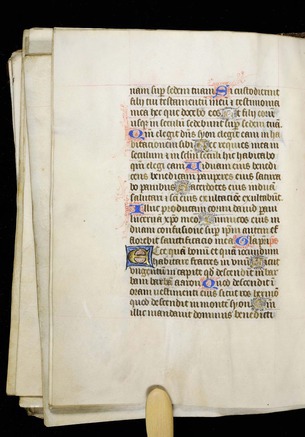 nam sup sedem tuam Si custodierint
filii tui testamentũ meũ ⁊ testimonia
mea hec que docebo eos Et filij eorũ
usqʒ in seculũ sedebunt sup sedem tuã
Qm̃ elegit dñs syon elegit eam in ha
bitacionem sibi Hec requies mea in
seculum ⁊ in seculi hic habitabo
qm̃ elegi eam Uiduam eius benedi
cens benedicam paupres eius satura
bo panibus Sacerdotes eius induã
salutari ⁊ sci eius exultacõe exultabũt
Illuc producam cornu dauid paui
lucernã xp̃o meo Inimicos eius in
duam confusione sup ip̃m autem ef
florebit sanctificacio mea Gla p̃ri
Ecce quã bonũ et quã iocundum
habitare fratres in unũ Sicut
ungentũ in capite qd̃ descendit in bar
bam barbã aaron Quod descendit ĩ
oram uestimenti eius sicut ros hermõ
quod descendit in monte syon Qm̃
illic mandauit dominus benedicti